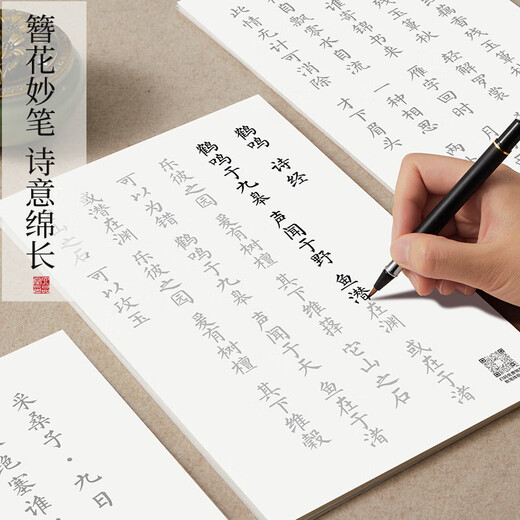 簪花妙笔 诗意绵长
藕香残玉簟秋 轻解罗裳
谁寄锦书来 雁字回时 月
自飘零水自流 一种相思 两
此情无计可消除 才下眉头
鹤鸣 诗经
鹤鸣于九皋 声闻于野 鱼潜在渊 或在于渚
乐彼之园 爰有树檀 其下维择 它山之石
可以为错 鹤鸣于九皋 声闻于天 鱼在于渚
或潜在渊 乐彼之园 爰有树檀 其下维榖
它山之石 可以攻玉
采桑子·九日
绝塞谁